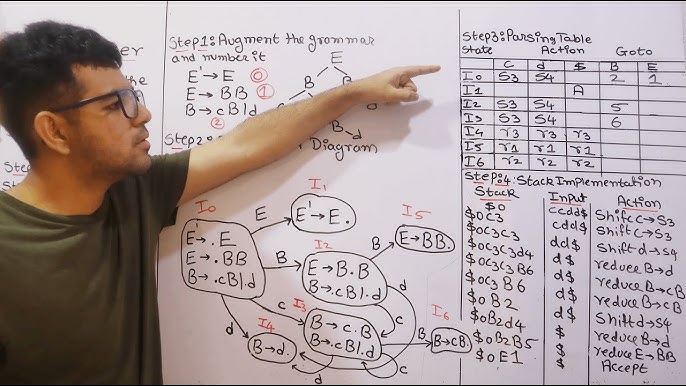 er
the
Step1:Augment the grammar
and number it
E'→E 0
E→BB 1
B→cB|d
2
E
B
d
B
d
Step2:
Diagram
I0
E'→.E
E→.BB
B→.cB|.d
E
I1
E'→E.
B
I2
E→B.B
B→.cB|.d
B
I5
E→BB.
c
I3
B→c.B
B→.cB|.d
B
I6
B→cB.
d
I4
B→d.
d
c
d
c
Step3:Parsing Table
State Action Goto
c d $ B E
I0 S3 S4 2 1
I1 A
I2 S3 S4 5
I3 S3 S4 6
I4 r3 r3 r3
I5 r1 r1 r1
I6 r2 r2 r2
Step:4:Stack Implementation
Stack Input Action
$0 ccdd$ Shift C→S3
$0C3 cdd$ Shift C→S3
$0C3C3 dd$ Shift d→S4
$0C3C3d4 d$ reduce B→d
$0C3C3B6 d$ reduce B→cB
$0C3B6 d$ reduce B→cB
$0B2 d$ Shift d→S4
$0B2d4 $ reduce B→d
$0B2B5 $ reduce E→BB
$0E1 $ Accept